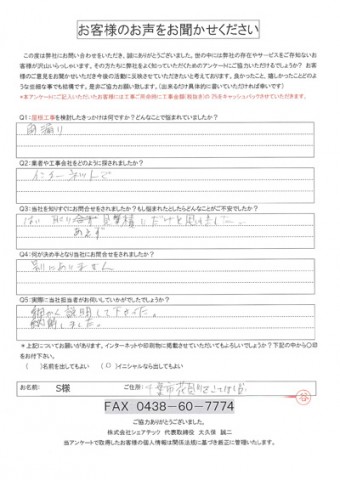 お客様のお声をお聞かせください
この度は弊社にお問い合わせをいただき、誠にありがとうございました。世の中には弊社の存在やサービスをご存知ないお
客様が沢山いらっしゃいます。その方たちに弊社をよく知っていただくためのアンケートにご協力いただけるでしょうか？ お客
様のご意見をお聞かせいただき今後の活動に反映させていただきたいと考えております。良かったこと、嬉しかったことどのよ
うな些細な事でも結構です。是非ご協力お願い致します。（出来るだけ具体的に書いていただければ幸いです）
Q1：屋根工事を検討したきっかけは何ですか？どんなことで悩まれていましたか？
雨漏り
Q2：業者や工事会社をどのように探されましたか？
インターネットで
Q3：当社を知りすぐにお問合せをされましたか？もし悩まれたとしたらどんなことがご不安でしたか？
はい 取り合えず 見積りだけと思いまして
Q4：何が決め手となり当社にお問合せをされましたか？
別にありません
Q5：実際に当社担当者がお伺いしていかがでしたでしょうか？
細かく説明して下さった。
納得しました。
＊上記についてお願いがあります。インターネットや印刷物に掲載させていただいてもよろしいでしょうか？下記の中から〇印
をお付下さい。
（ ）名前を出してもよい （〇）イニシャルなら出してもよい
お名前： S様 ご住所： 千葉市花見川区
FAX 0438-60-7774
ご協力ありがとうございました。
株式会社シェアテック 代表取締役 大久保 誠二
当アンケートで取得したお客様の個人情報は関係法規に基づき厳正に管理いたします。